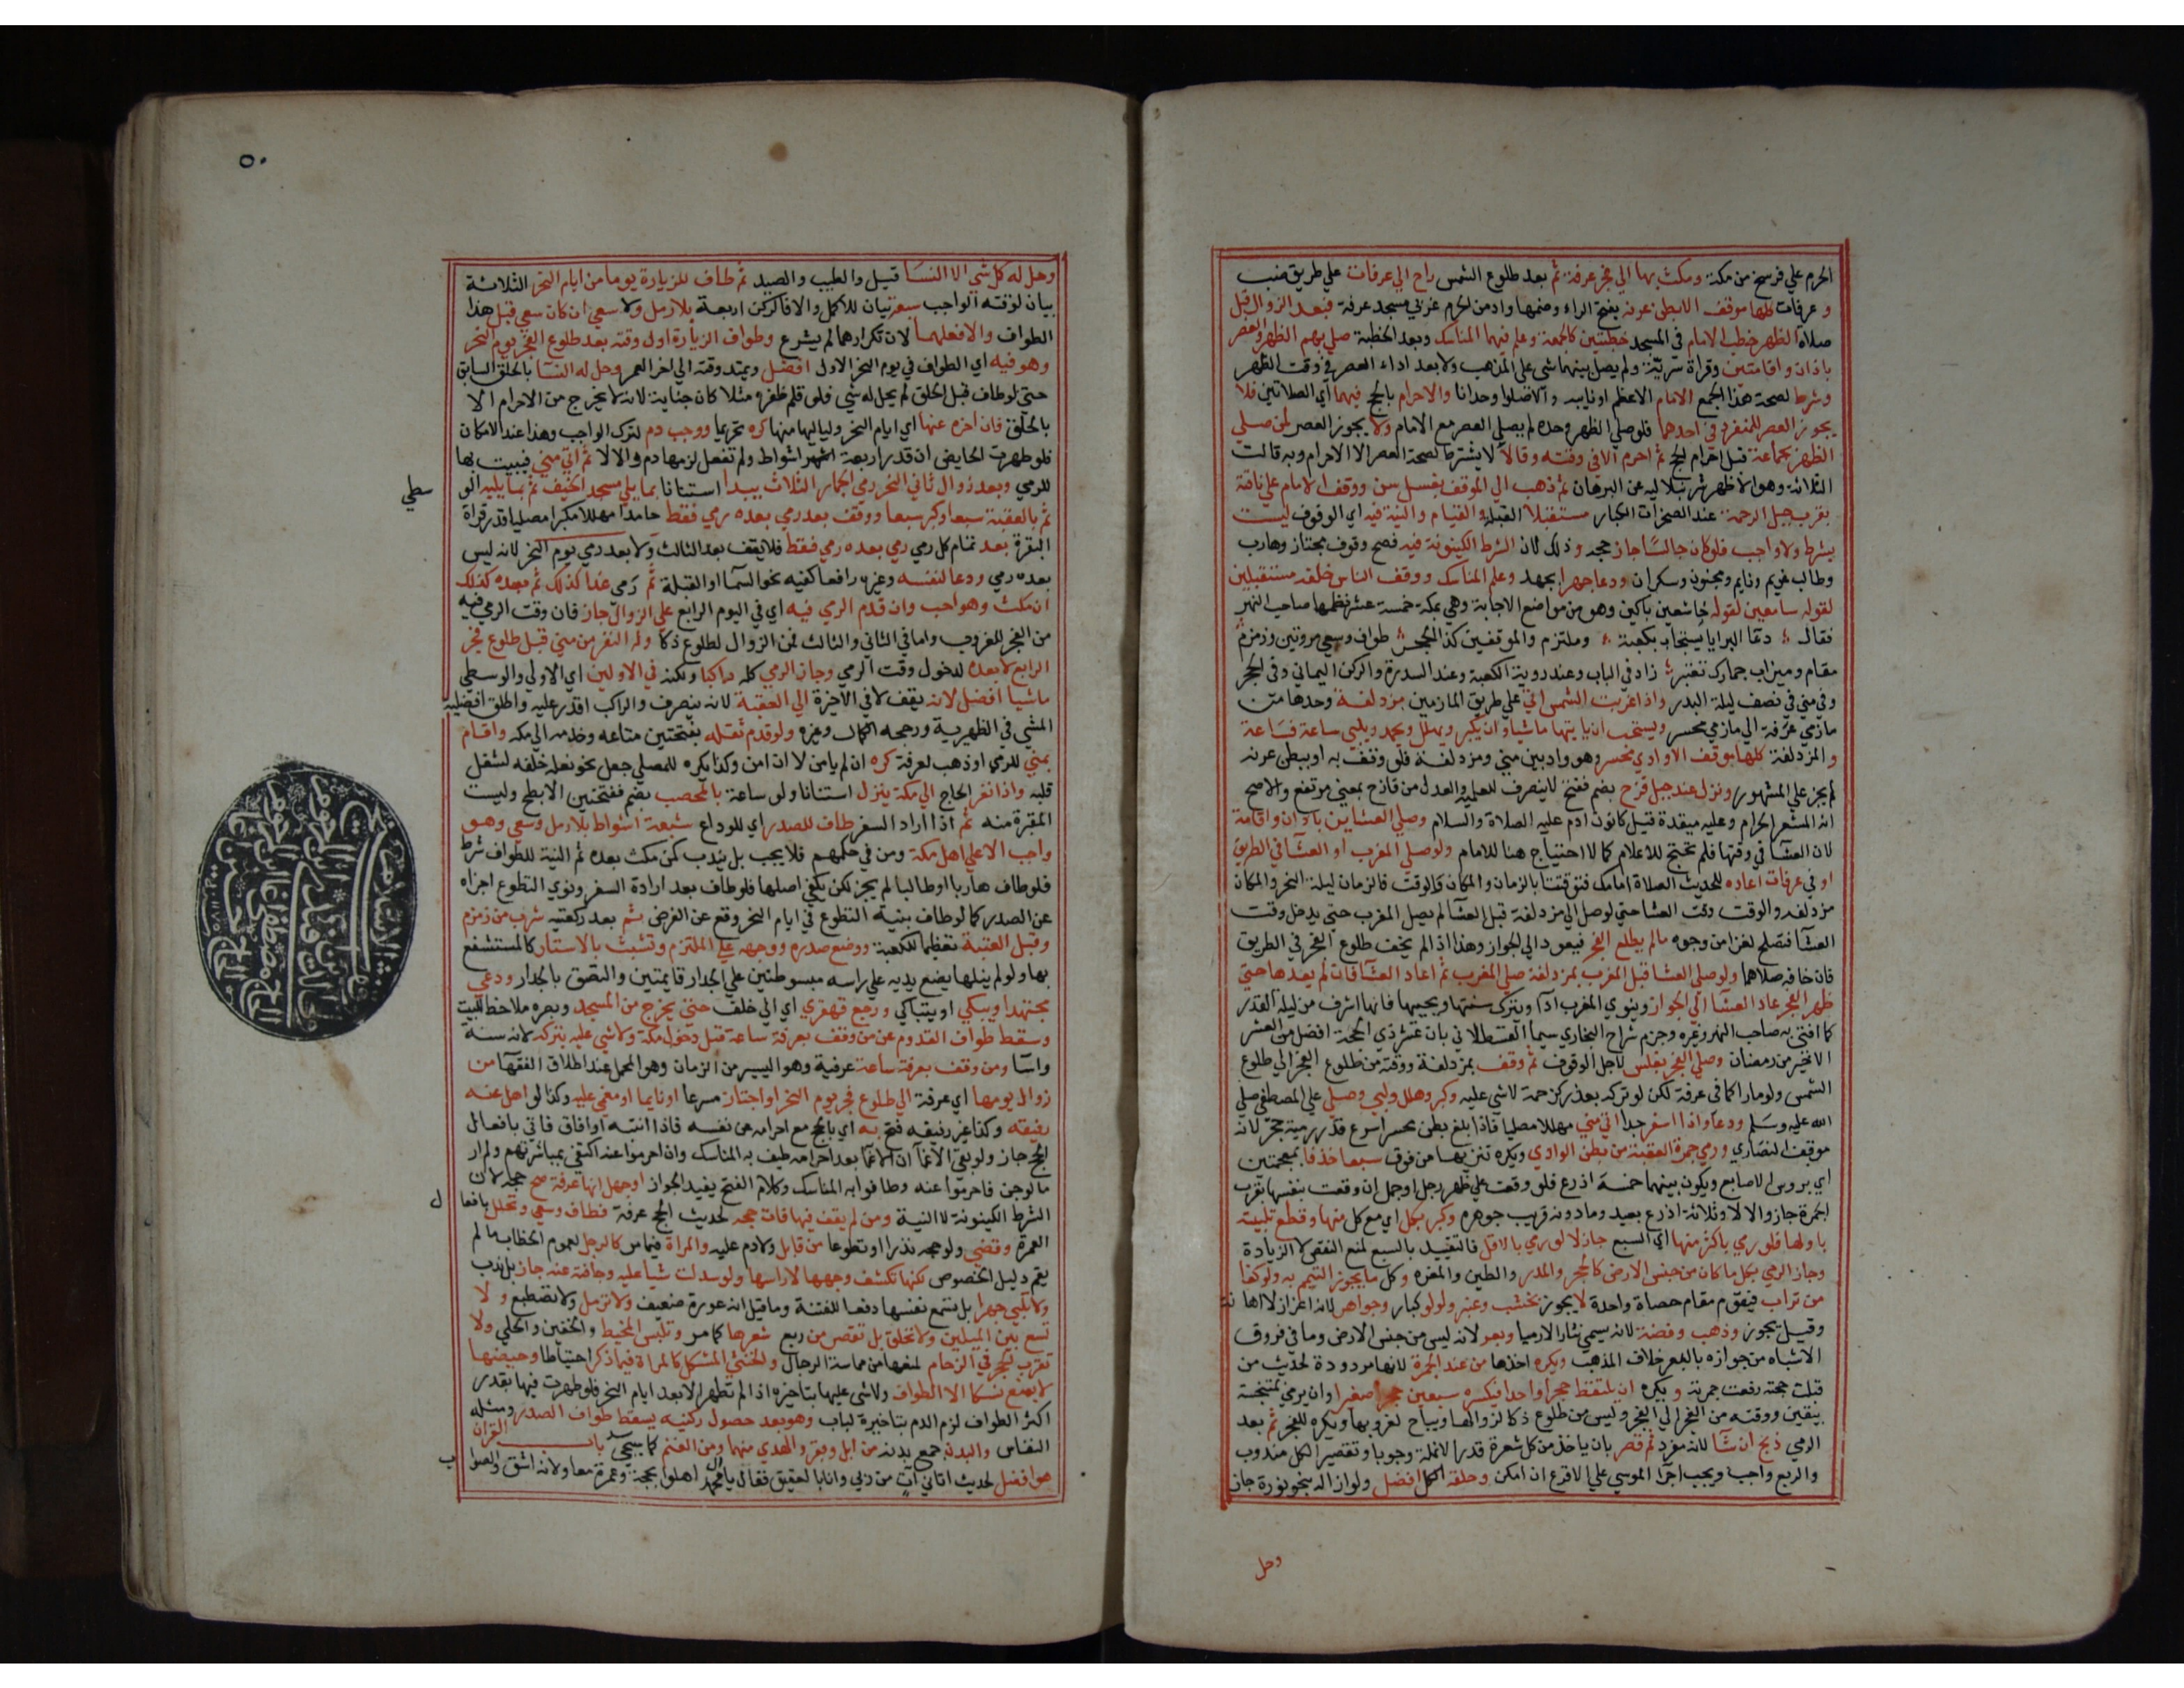 الحرم علي فرسخ من مكة ومكث بها الي فجر عرفة ثم بعد طلوع الشمس راح الي عرفات علي طريق ضب
و عرفات كلها موقف الا بطن عرنه بفتح الراء وضمها واد من الحرم غربي مسجد عرفة فبعد الزوال قبل
صلاة الظهر خطب الامام في المسجد خطبتين كالجمعة وعلم فيهما المناسك وبعد الخطبة صلي بهم الظهر والعصر
باذان واقامتين وقراة سرية ولم يصل بينهما شي علي المذهب ولا بعد اداء العصر في وقت الظهر
وشرط لصحة هذا الجمع الامام الاعظم او نايبه والا صلوا وحدانا والاحرام بالحج فيهما اي الصلاتين فلا
يجوز العصر للمنفرد في احدهما فلو صلي الظهر وحده لم يصلي العصر مع الامام ولا يجوز العصر لمن صلي
الظهر بجماعة قبل احرام الحج ثم احرم الا في وقته وقالا لا يشترط لصحة العصر الا الاحرام وبه قالت
الثلاثة وهو الاظهر شرنبلاليه عن البرهان ثم ذهب الي الموقف بغسل سن ووقف الامام علي ناقة
بقرب جبل الرحمة عند الصخرات الكبار مستقبلا القبلة والقيام والنية فيه اي الوقوف ليست
بشرط ولا واجب فلو كان جالسا جاز حجه وذلك لان الشرط الكينونة فيه فصح وقوف مجتاز وهارب
وطالب غريم ونايم ومجنون وسكران ودعا جهرا بجهد وعلم المناسك ووقف الناس خلفه مستقبلين
لقوله سامعين لقوله خاشعين باكين وهو من مواضع الاجابة وهي بمكة خمسة عشر نظمها صاحب النهر
فقال دعا البرايا يستجاب بكعبة وملتزم والموقفين كذا الحجر طواف وسعي مروتين وزمزم
مقام وميزاب جمارك تعتبر زاد في الباب وعند روية الكعبة وعند السدرة والركن اليماني وفي الحجر
وفي مني في نصف ليلة البدر واذا غربت الشمس اتي علي طريق المازمين مزدلفة وحدها من
مازمي عرفة الي مازمي محسر ويستحب ان ياتيها ماشيا وان يكبر ويهلل ويحمد ويلبي ساعة فساعة
والمزدلفة كلها موقف الا وادي محسر وهو واد بين مني ومزدلفة فلو وقف به او ببطن عرنه
لم يجز علي المشهور ونزل عند جبل قزح بضم ففتح لا ينصرف للعلمية والعدل من قازح بمعني مرتفع والاصح
انه المشعر الحرام وعليه ميقدة قيل كانون ادم عليه الصلاة والسلام وصلي العشاين باذان واقامة
لان العشا في وقتها فلم تحتج للاعلام كما لا احتياج هنا للامام ولو صلي المغرب او العشا في الطريق
او في عرفات اعاده للحديث الصلاة امامك فتوقتتا بالزمان والمكان والوقت فالزمان ليلة النحر والمكان
مزدلفه والوقت وقت العشا حتي لو وصل الي مزدلفة قبل العشا لم يصل المغرب حتي يدخل وقت
العشا فتصلح لغزا من وجوه مالم يطلع الفجر فيعود الي الجواز وهذا اذا لم يخف طلوع الفجر في الطريق
فان خافه صلاهما ولو صلي العشا قبل المغرب بمزدلفة صلي المغرب ثم اعاد العشا فان لم يعدها حتي
ظهر الفجر عاد العشا الي الجواز وينوي المغرب ادا ويترك سنتها ويحييها فانها اشرف من ليلة القدر
كما افتي به صاحب النهر وغيره وجزم شراح البخاري سيما القسطلاني بان عشر ذي الحجة افضل من العشر
الاخير من رمضان وصلي الفجر بغلس لاجل الوقوف ثم وقف بمزدلفة ووقته من طلوع الفجر الي طلوع
الشمس ولو مارا كما في عرفة لكن لو تركه بعذر كزحمة لا شي عليه وكبر وهلل ولبي وصلي علي المصطفي صلي
الله عليه وسلم ودعا واذا اسفر جدا اتي مني مهللا مصليا فاذا بلغ بطن محسر اسرع قدر رمية حجر لانه
موقف النصاري ورمي جمرة العقبة من بطن الوادي ويكره تنزيها من فوق سبعا خذفا بمعجمتين
اي بروس الاصابع ويكون بينهما خمسة اذرع فلو وقعت علي ظهر رجل او جمل ان وقعت بنفسها بقرب
الجمرة جاز والا لا وثلاثة اذرع بعيد وما دونه قريب جوهره وكبر بكل اي مع كل منها وقطع تلبيته
باولها فلو رمي باكثر منها اي السبع جاز لا لو رمي بالاقل فالتقييد بالسبع لمنع النقص لا الزيادة
وجاز الرمي بكل ما كان من جنس الارض كالحجر والمدر والطين والمغره وكل ما يجوز التيمم به ولو كفا
من تراب فيقوم مقام حصاة واحدة لا يجوز بخشب وعنبر ولولو كبار وجواهر لانه اعزاز لا اهانة
وقيل يجوز وذهب وفضة لانه يسمي نثارا لا رميا وبعر لانه ليس من جنس الارض وما في فروق
الاشباه من جوازه بالبعر خلاف المذهب ويكره اخذها من عند الجمرة لانها مردودة لحديث من
قبلت حجته رفعت جمرته ويكره ان يلتقط حجرا واحدا فيكسره سبعين حجرا صغيرا وان يرمي بمتنجسة
بيقين ووقته من الفجر الي الفجر وليس من طلوع ذكا لزوالها ويباح لغروبها ويكره للفجر ثم بعد
الرمي ذبح ان شا لانه مفرد ثم قصر بان ياخذ من كل شعرة قدر الانملة وجوبا وتقصير الكل مندوب
والربع واجب ويجب اجرا الموسي علي الاقرع ان امكن وحلقه الكل افضل ولو ازاله بنحو نورة جاز
وحل
٥٠
وحل له كل شي الا النسا قيل والطيب والصيد ثم طاف للزيارة يوما من ايام النحر الثلاثة
بيان لوقته الواجب سبعة بيان للاكمل والا فالركن اربعة بلا رمل ولا سعي ان كان سعي قبل هذا
الطواف والا فعلهما لان تكرارهما لم يشرع وطواف الزيارة اول وقته بعد طلوع الفجر يوم النحر
وهو فيه اي الطواف في يوم النحر الاول افضل ويمتد وقته الي اخر العمر وحل له النسا بالحلق السابق
حتي لو طاف قبل الحلق لم يحل له شي فلو قلم ظفره مثلا كان جناية لانه لا يخرج من الاحرام الا
بالحلق فان اخره عنها اي ايام النحر ولياليها منها كره تحريما ووجب دم لترك الواجب وهذا عند الامكان
فلو طهرت الحايض ان قدر اربعة اشواط ولم تفعل لزمها دم والا لا ثم اتي مني فيبيت بها
للرمي وبعد زوال ثاني النحر رمي الجمار الثلاث يبدا استنانا بما يلي مسجد الخيف ثم بما يليه الو
سطي
ثم بالعقبة سبعا وكبر سبعا ووقف بعد رمي بعده رمي فقط حامدا مهللا مكبرا مصليا قدر قراة
البقرة بعد تمام كل رمي رمي بعده رمي فقط فلا يقف بعد الثالث ولا بعد رمي يوم النحر لانه ليس
بعده رمي ودعا لنفسه وغيره رافعا كفيه نحو السما او القبلة ثم رمي غدا كذلك ثم بعده كذلك
ان مكث وهو احب وان قدم الرمي فيه اي في اليوم الرابع علي الزوال جاز فان وقت الرمي فيه
من الفجر للغروب واما في الثاني والثالث فمن الزوال لطلوع ذكا وله النفر من مني قبل طلوع فجر
الرابع لا بعده لدخول وقت الرمي وجاز الرمي كله راكبا ولكنه في الاولين اي الاولي والوسطي
ماشيا افضل لانه يقف لا في الاخيرة الي العقبة لانه ينصرف والراكب اقدر عليه واطلق افضلية
المشي في الظهيرية ورجحه الكمال وغيره ولو قدم ثقله بفتحتين متاعه وخدمه الي مكه واقام
بمني للرمي او ذهب لعرفة كره ان لم يامن لا ان امن وكذا يكره للمصلي جعل نحو نعله خلفه لشغل
قلبه واذا نفر الحاج الي مكة ينزل استنانا ولو ساعة بالمحصب بضم ففتحتين الابطح وليست
المقبرة منه ثم اذا اراد السفر طاف للصدر اي للوداع سبعة اشواط بلا رمل وسعي وهو
واجب الا علي اهل مكة ومن في حكمهم فلا يجب بل يندب كمن مكث بعده ثم النية للطواف شرط
فلو طاف هاربا او طالبا لم يجز لكن يكفي اصلها فلو طاف بعد ارادة السفر ونوي التطوع اجزاه
عن الصدر كما لو طاف بنية التطوع في ايام النحر وقع عن الفرض ثم بعد ركعتيه شرب من زمزم
وقبل العتبة تعظيما للكعبة ووضع صدره ووجهه علي الملتزم وتشبث بالاستار كالمستشفع
بها ولو لم ينلها يضع يديه علي راسه مبسوطتين علي الجدار قايمتين والتصق بالجدار ودعي
مجتهدا ويبكي او يتباكي ورجع قهقري اي الي خلف حتي يخرج من المسجد وبصره ملاحظ للبيت
وسقط طواف القدوم عن من وقف بعرفة ساعة قبل دخول مكة ولا شي عليه بتركه لانه سنة
واسا ومن وقف بعرفة ساعة عرفية وهو اليسير من الزمان وهو المحمل عند اطلاق الفقها من
زوال يومها اي عرفة الي طلوع فجر يوم النحر او اجتاز مسرعا او نايما او مغمي عليه وكذا لو اهل عنه
رفيقه وكذا غير رفيقه فتح به اي بالحج مع احرامه عن نفسه فاذا انتبه او افاق فاتي بافعال
الحج جاز ولو بقي الاغما ان الاغما بعد احرامه طيف به المناسك وان احرموا عنه اكتفي بمباشرتهم ولم ار
ما لو جن فاحرموا عنه وطافوا به المناسك وكلام الفتح يفيد الجواز او جهل انها عرفة صح حجه لان
الشرط الكينونة لا النية ومن لم يقف فيها فات حجه لحديث الحج عرفة فطاف وسعي وتحلل بافعا
ل
العمرة وقضي ولو حجه نذرا او تطوعا من قابل ولا دم عليه والمراة فيما مر كالرجل لعموم الخطاب ما لم
يقم دليل الخصوص لكنها تكشف وجهها لا راسها ولو سدلت شيا عليه وجافته عنه جاز بل ندب
ولا تلبي جهرا بل تسمع نفسها دفعا للفتنة وما قيل انه عورة ضعيف ولا ترمل ولا تضطبع و لا
تسع بين الميلين ولا تحلق بل تقصر من ربع شعرها كما مر وتلبس المخيط والخفين والحلي ولا
تقرب الحجر في الزحام لمنعها من مماسة الرجال والخنثي المشكل كالمراة فيما ذكر احتياطا وحيضها
لا يمنع نسكا الا الطواف ولا شي عليها بتاخيره اذا لم تطهر الا بعد ايام النحر فلو طهرت فيها بقدر
اكثر الطواف لزم الدم بتاخيره لباب وهو بعد حصول ركنيه يسقط طواف الصدر ومثله
النفاس والبدن جمع بدنه من ابل وبقر والهدي منهما ومن الغنم كما سيجي باب القران
هو افضل لحديث اتاني آت من ربي وانا بالعقيق فقال يا آل محمد اهلوا بحجة وعمرة معا ولانه اشق والصوا
ب